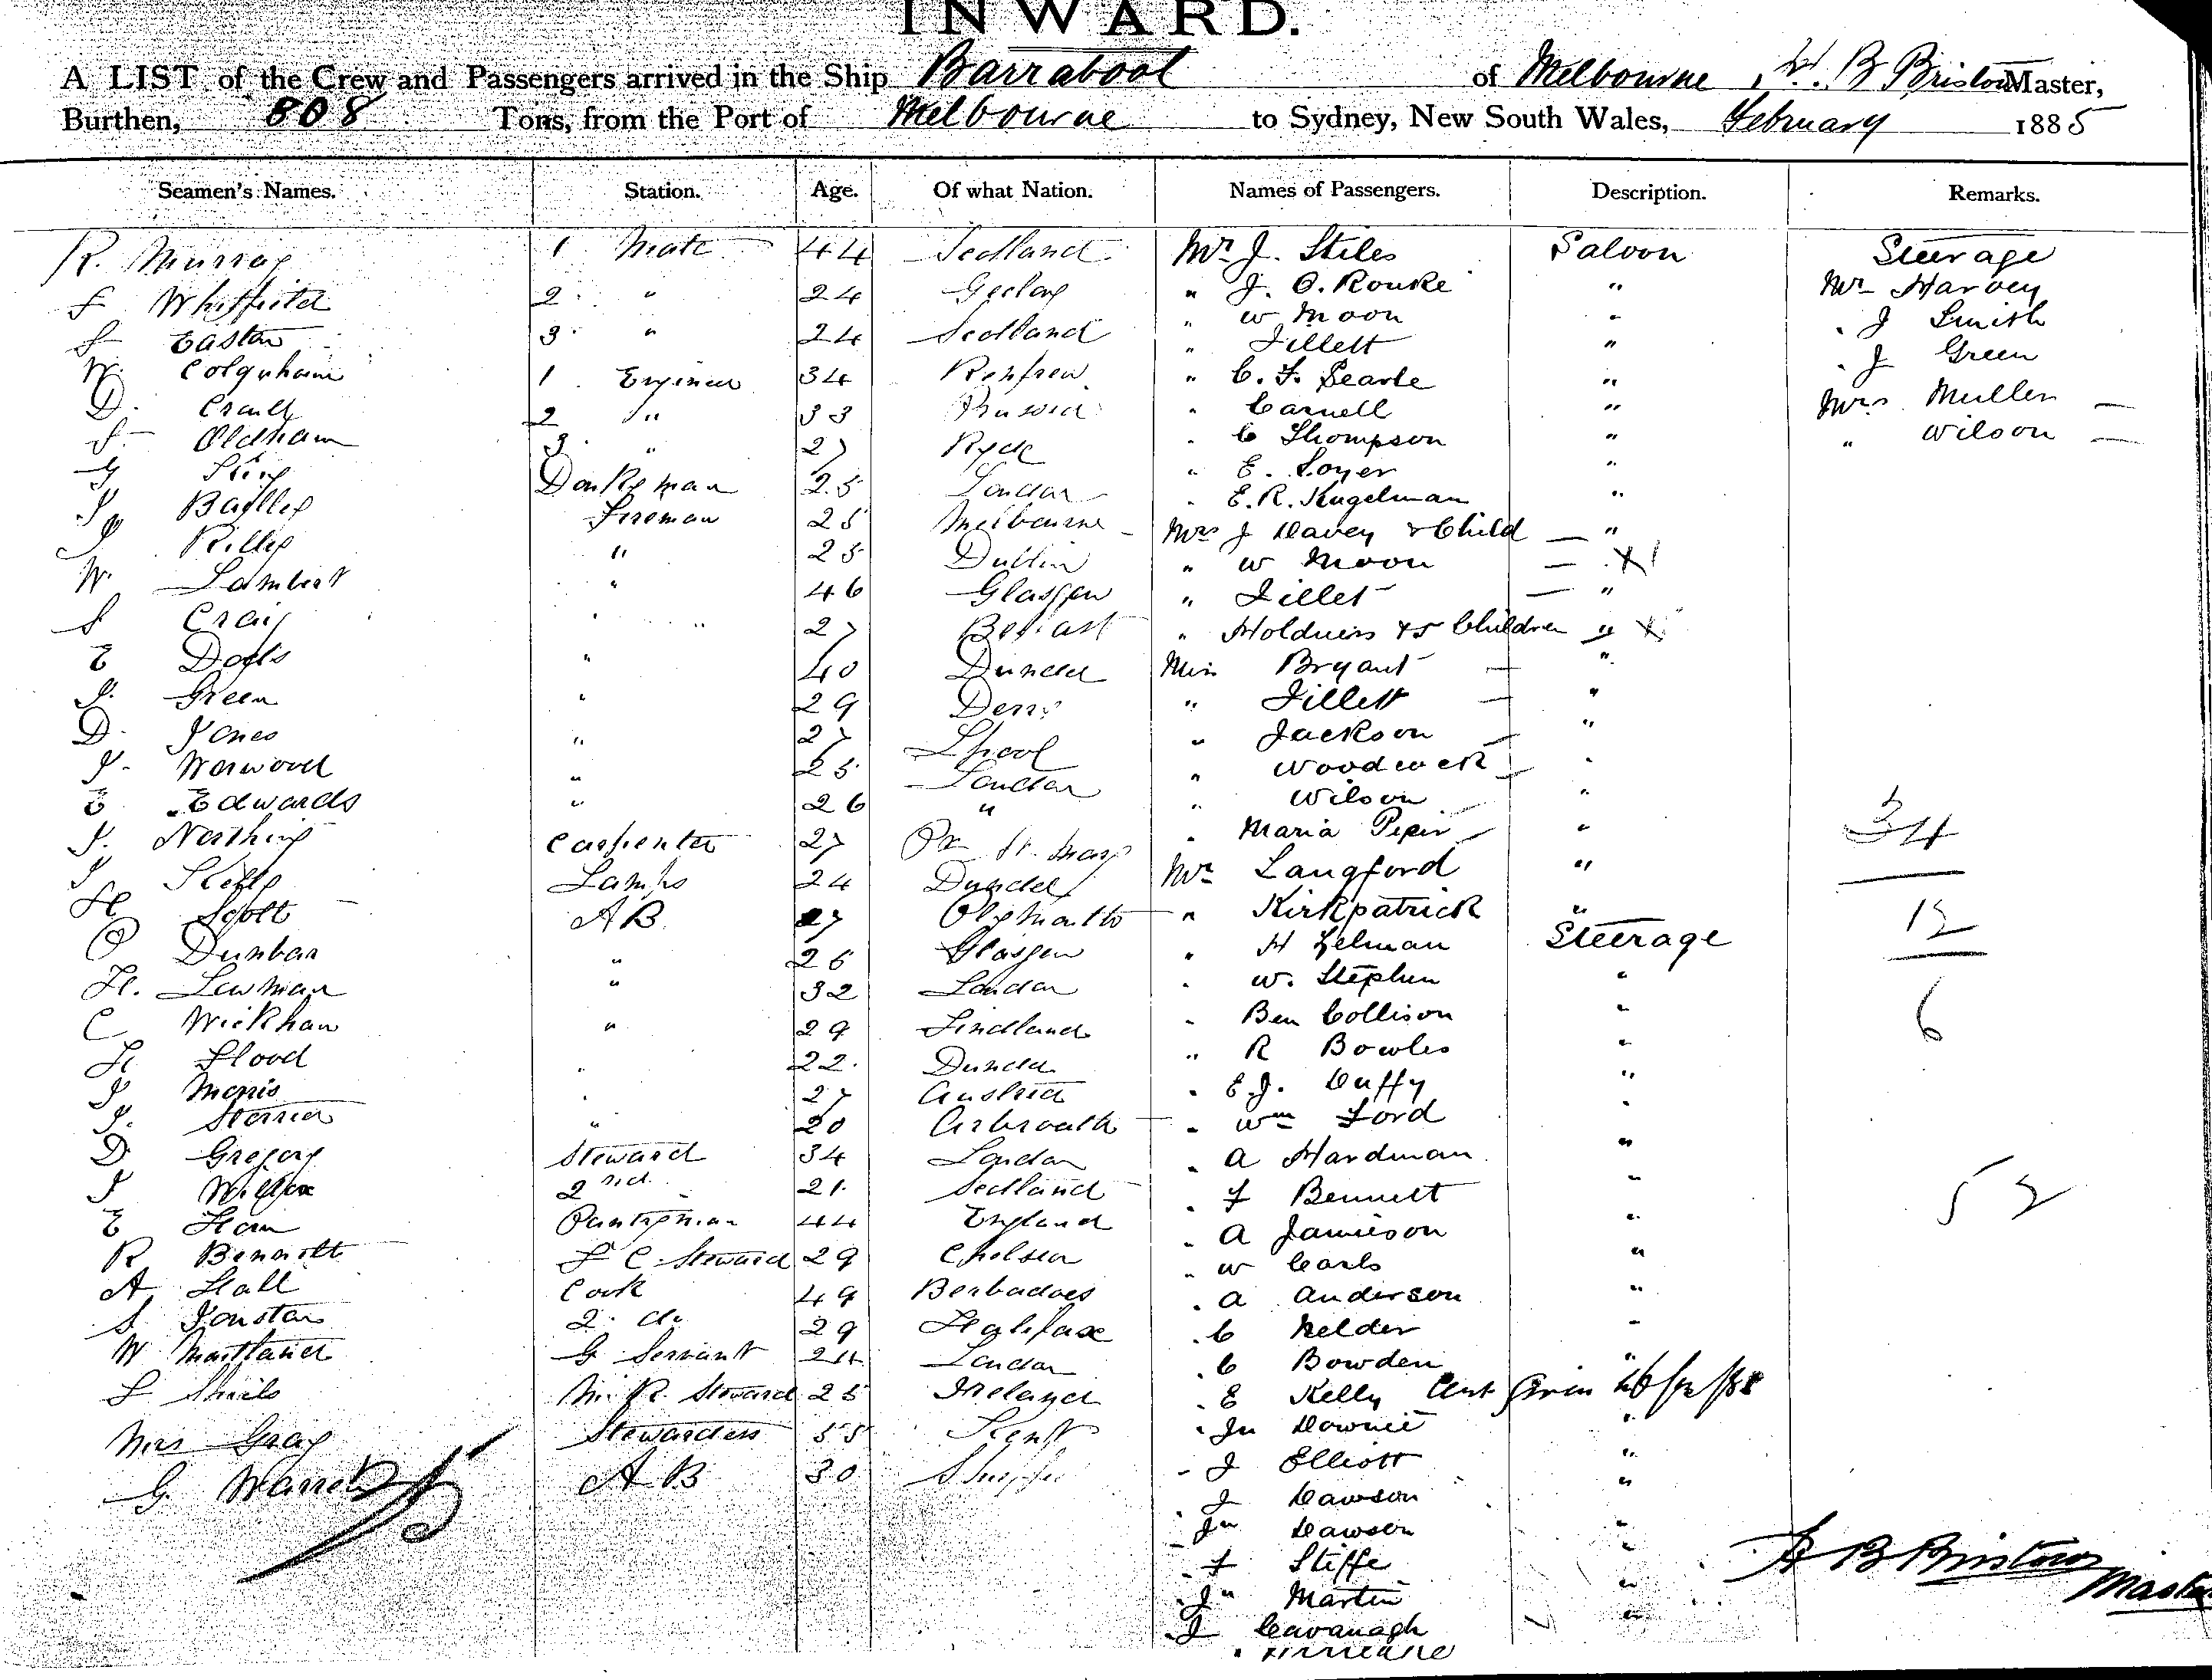 INWARD.
A LIST of the Crew and Passengers arrived in the Ship Barrabool of Melbourne, H. B Bristow Master,
Burthen, 808 Tons, from the Port of Melbourne to Sydney, New South Wales, February 1885
Seamen's Names. Station. Age. Of what Nation. Names of Passengers. Description. Remarks.
R. Murray 1 Mate 44 Scotland Mr J. Stiles Saloon Steerage
Whitfield 2 " 24 Geelong " J. O. Rourke " Mr Harvey
Easton 3 " 24 Scotland " W Moon " . J Smith
W. Colquhoun 1 Engineer 34 Renfrew " Tillett " . J Green
D. 2 " 33 Russia " C. F. Searle " Mrs Muller
Oldham 3 " 27 Ryde . Carnell " " Wilson
G King Donkeyman 25 London . C Thompson "
J Bailley Fireman 25 Melbourne " E. Loyer "
J Killip " 25 Dublin . E. R. Kugelman "
W. Lambert " 46 Glasgow Mrs J Davey & Child "
Craig " 27 Belfast " W Moon "
E Dods " 40 Dundee " Tillet "
J. Green " 29 Derry " Holdness & 5 Children "
D. Jones " 27 Lpool Miss Bryant "
J. Norwood " 25 London " Tillett "
E. Edwards " 26 " " Jackson "
J. Northing Carpenter 27 St. Mary " Woodcock "
J Kelly Lamps 24 Dundee " Wilson "
H Scott AB 27 . Maria Peper " 34
P Dunbar " 25 Glasgow Mr Langford "
H. Lawman " 32 London " Kirkpatrick " 12
C Wickham " 29 Finland . H Zelman Steerage
H Flood . 22 Dundee . W. Stephen " 6
J Morris . 27 Austria . Ben Collison "
J. Sterrier " 20 Arbroath " R Bowles "
D Gregory Steward 34 London . E. J. Duffy "
J Wilcox 2nd 21 Scotland . Wm Ford "
E Ham Pantryman 44 England . A Hardman " 52
R Bennett F C Steward 29 Chelsea . F Bennett "
A Hall Cook 49 Barbadoes . A Jamieson "
J Jonston 2 do 29 Halifax " W Carls "
W Maitland G Servant 24 London . A Anderson "
Sheils M. R. Steward 25 Ireland . C Nelder "
Mrs Gray Stewardess 55 Kent . C Bowden "
G. Warren AB 30 . E Kelly Cert Given
. Jn Downie "
. J Elliott "
. J Dawson "
Jn Dawson "
. F Stiffe "
. Jn Martin "
. J Cavanagh "
H B Bristow
Master